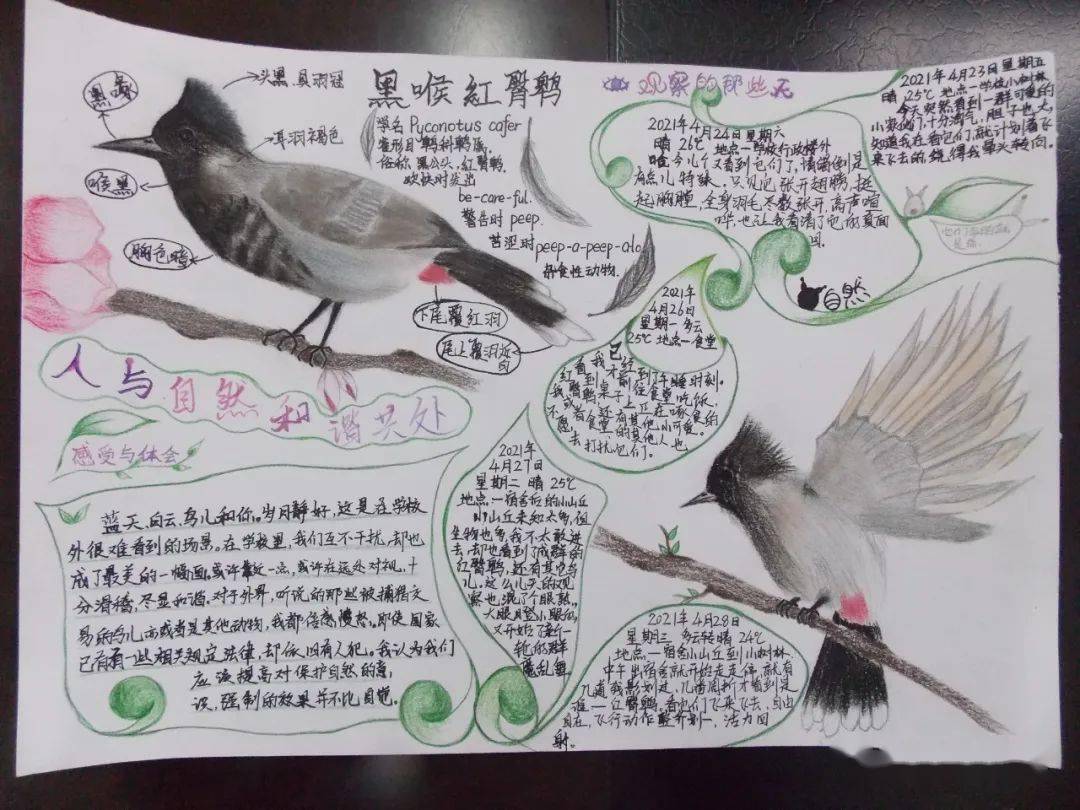 黑喉红臀鹎
黑嘴
头黑,具羽冠
耳羽褐色
喉黑
胸色暗
下尾覆红羽
尾上覆羽近白
学名 Pyconotus cafer
雀形目鹎科鹎属,
俗称 黑公头,红臀鹎.
欢快时发出
be-care-ful.
警告时 peep.
苦涩时peep-a-peep-alo
杂食性动物.
观察的那些天
2021年4月23日星期五
晴 25℃ 地点一学校小树林
今天突然看到一群可爱的
小家伙们,十分淘气,胆子也大,
知道我在看它们,就计划着飞
来飞去的绕,得我晕头转向。
2021年4月24日星期六
晴 26℃ 地点一学校行政楼外
嗐,今儿个又看到它们了,情绪倒是
有点儿特殊。只见它张开翅膀,挺
起胸膛,全身羽毛尽数张开,高声喧
哗,也让我看清了它的真面
目.
自然
2021年
4月26日
星期一 多云
25℃ 地点一食堂
人与自然和谐共处
感受与体会
蓝天,白云,鸟儿和你。岁月静好,这是在学校
外很难看到的场景。在学校里,我们互不干扰,却也
成了最美的一幅画。或许靠近一点,或许在远处对视,十
分滑稽,尽显和谐.对于外界,听说的那些被捕猎交
易的鸟儿亦或者是其他动物,我都倍感愤怒。即使国家
已有一些相关规定法律,却依旧有人犯。我认为我们
应该提高对保护自然的意
识,强制的效果并不比自觉.
2021年
4月27日
星期二 晴 25℃
地点一宿舍后的小山丘
小山丘未知太多,但
生物也多,我不太敢进
去,却也看到了成群的
红臀鹎,还有其它鸟
儿。这么几天的观
察也混了个眼熟。
大眼瞪小眼后,
又开始了新一
轮的群
魔乱舞
2021年4月28日
星期三 多云转晴 24℃
地点一宿舍小山丘到小树林.
中午出宿舍就开始走走停,就有
几道我影划过,几番周折才看到是
谁一红臀鹎。看他们飞来飞去,自由
自在,飞行动作整齐划一,活力四
射。